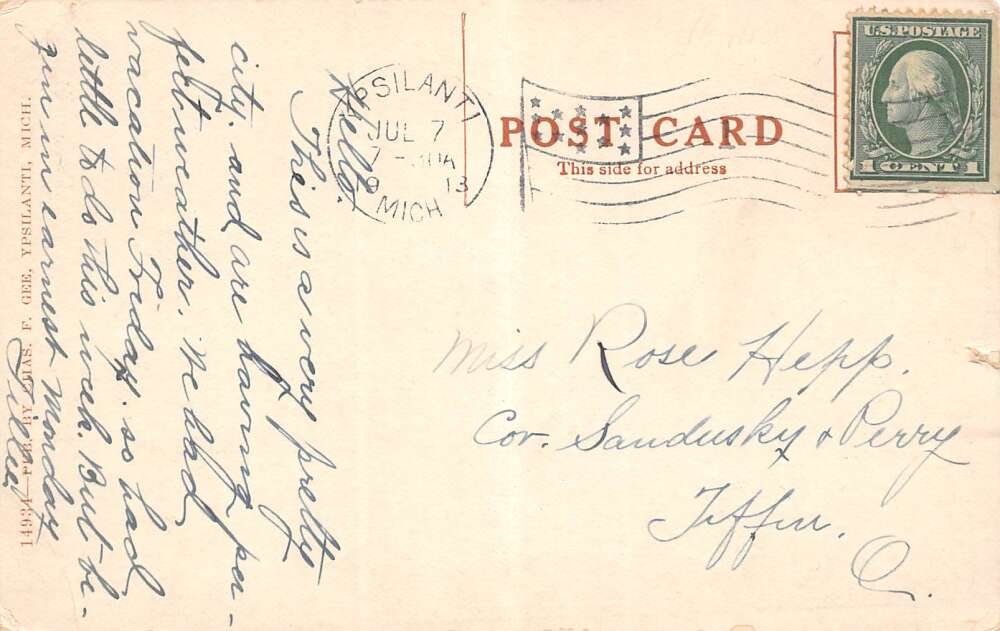 Hello.
This is a very pretty
city. and are having per-
fect weather. We had
vacation Friday. so had
little to do this week. But be-
gin in earnest Monday
Tillie
14934—PUB. BY CHAS. F. GEE, YPSILANTI, MICH.
YPSILANTI
JUL 7
7-30A
19 13
MICH
POST CARD
This side for address
U.S. POSTAGE
1 CENT 1
Miss Rose Hepp.
Cor. Sandusky & Perry
Tiffin.
O.